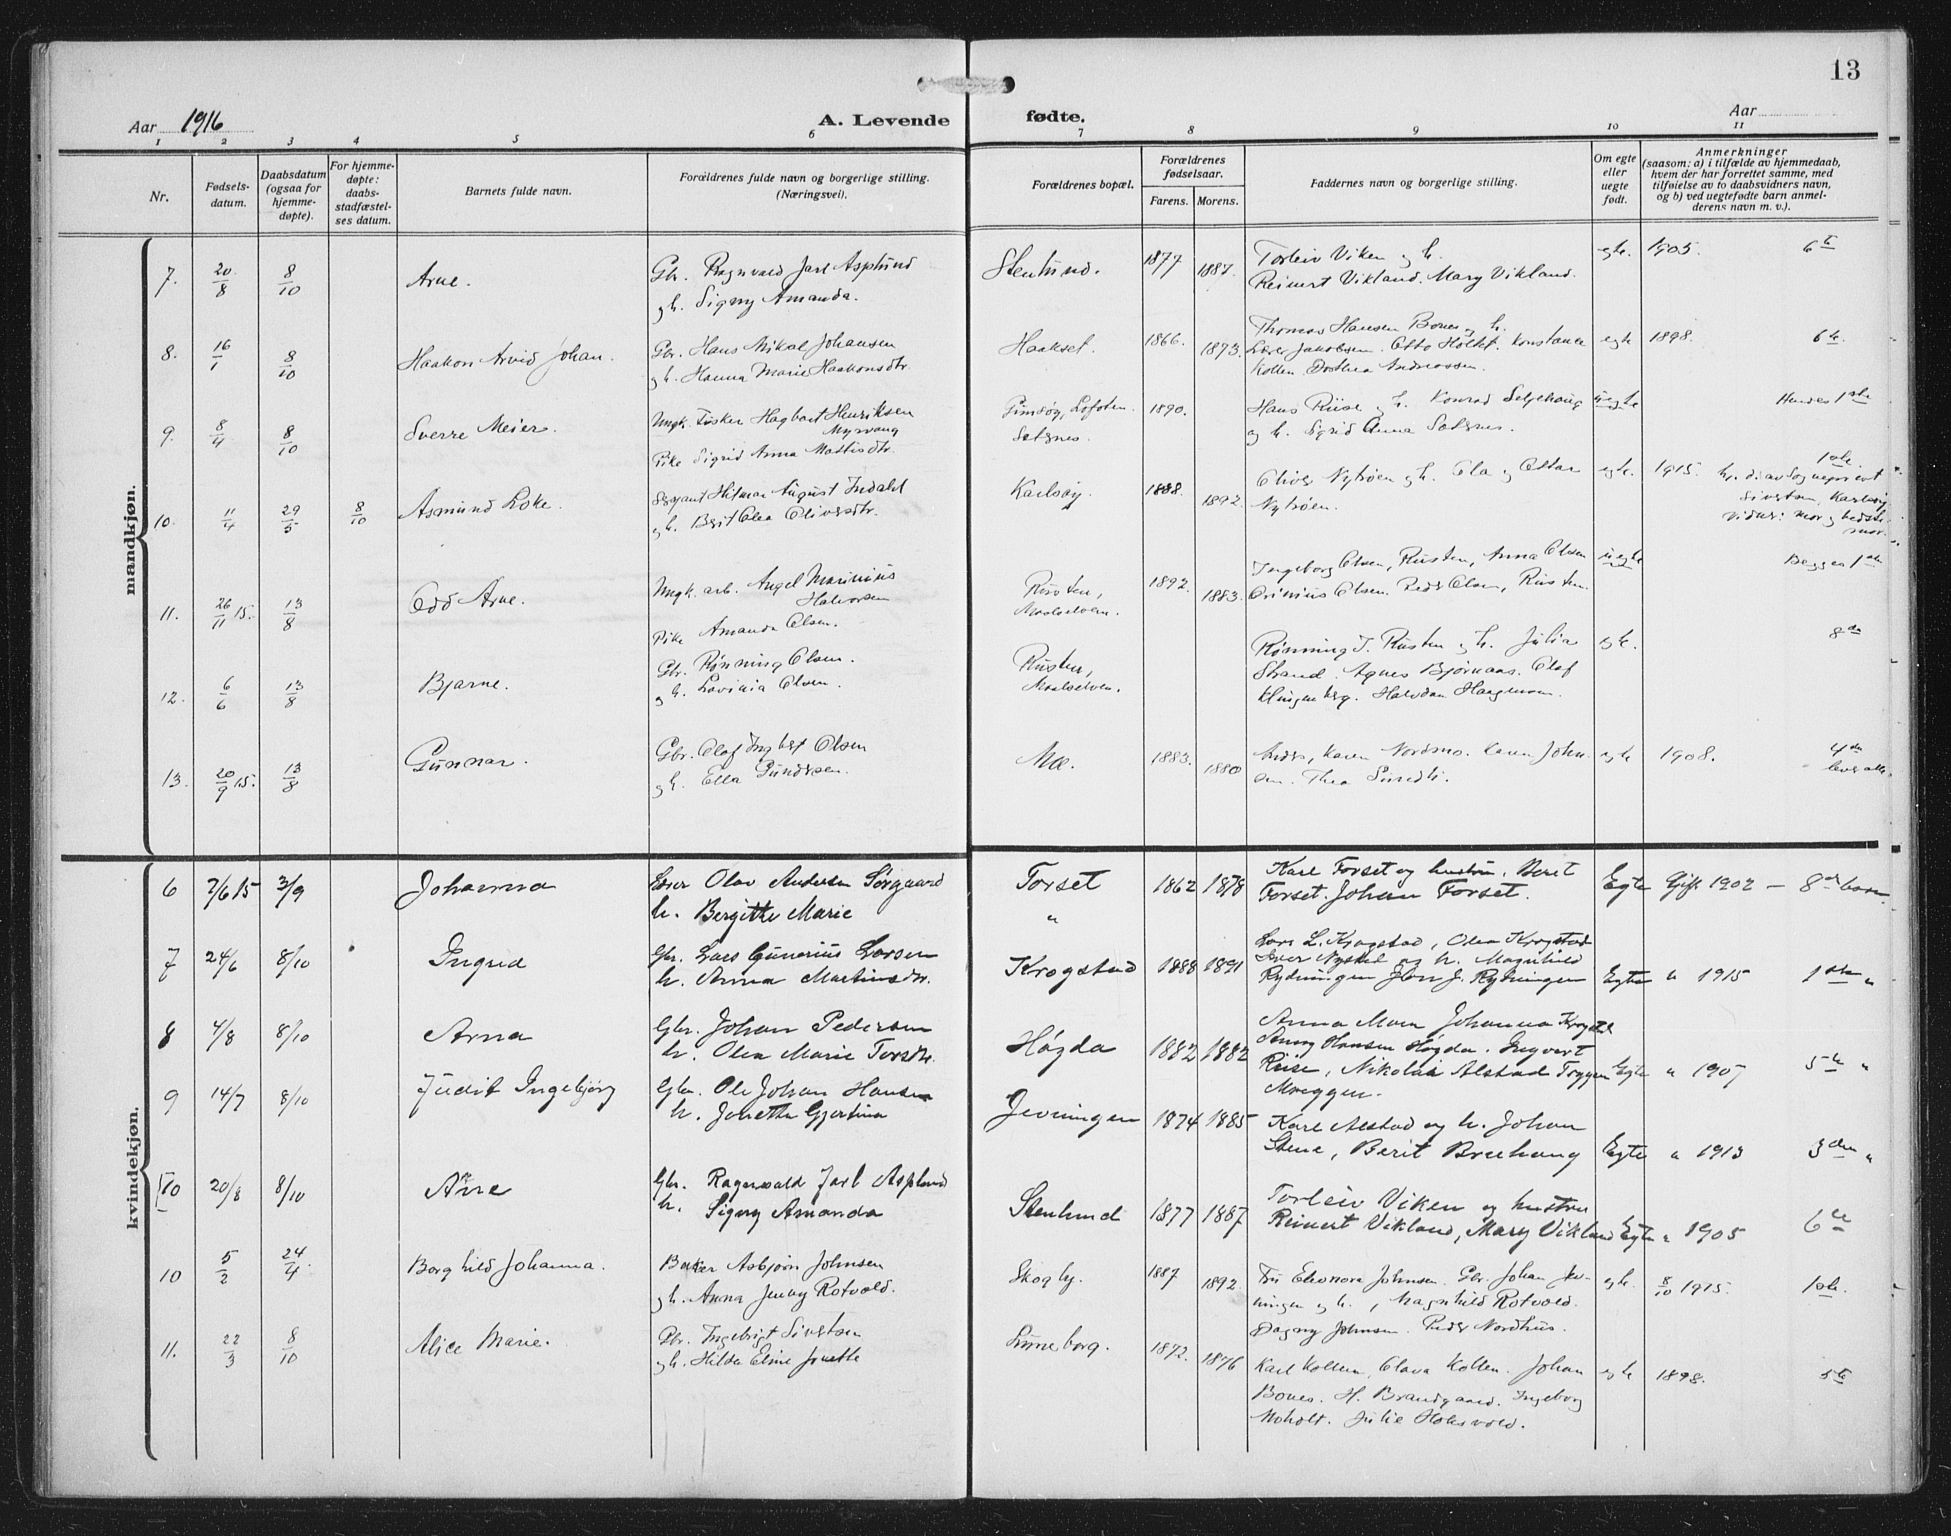 13
Aar 1916
A. Levende fødte.
Aar
1 2 3 4 5 6 7 8 9 10 11
Nr.
Fødsels-
datum.
Daabsdatum
(ogsaa for
hjemme-
døpte).
For hjemme-
døpte:
daabs-
stadfæstel-
ses datum.
Barnets fulde navn.
Forældrenes fulde navn og borgerlige stilling.
(Næringsvei).
Forældrenes bopæl.
Forældrenes
fødselsaar.
Farens. Morens.
Faddernes navn og borgerlige stilling.
Om egte
eller
uegte
født.
Anmerkninger
(saasom: a) i tilfælde av hjemmedaab,
hvem der har forrettet samme, med
tilføielse av to daabsvidners navn,
og b) ved uegtefødte barn anmel-
derens navn m. v.).
mandkjøn.
7. 20/8 8/10 Arne. Gbr. Ragnvald Jarl Asplund
og h. Signy Amanda.
Stenlund. 1877 1887. Torleiv Viken og h.
Reinert Vikland. Mary Vikland. egte. 1905. 6te
8. 16/1 8/10 Haakon Arvid Johan. Gbr. Hans Mikal Johansen
og h. Hanna Marie Haakonsdtr.
Haakset. 1866. 1873. Thomas Hansen Bones og h.
Lærer Jakobsen. Otto Holtet. Konstance
Kollen. Dorthea Andreassen. egte 1898. 6te.
9. 8/4 8/10 Sverre Meier. Ungk. Fisker Hagbart Henriksen
Myrvang
Pike Sigrid Anna Mattisdtr.
Gimsøy, Lofoten.
Sætrnes. 1890. Hans Riise og h. Konrad Seljehaug
og h. Sigrid Anna uegte Hendes 1ste
10. 11/4 29/5 8/10 Asmund Loke. Sersjant Hilmar August Indahl
og h. Berit Olea Oliversdtr.
Karlsøy. 1888. 1892. Oliver Nyrøen og h. Ola og Ottar
Nyrøen. egte. 1915. 1ste.
hj. d. av Sogneprest
Sivertsen, Karlsøy
Vidner: mor og bedste-
mor.
11. 26/11 15. 13/8 Odd Arne. Ungk. arb. Angel Marinius
Halvorsen
Pike Amanda Olsen.
Rusten,
Maalselven. 1892. 1883. Ingeborg Olsen, Rusten, Anna Olsen
Olsen. Peder Olsen, Rusten. uegte Begges 1ste
12. 6/6 13/8 Bjarne. Gbr. Rønning Olsen.
og h. Lovinia Olsen.
Rusten,
Maalselven. Rønning J. Rusten og h. Julia
Strand. Agnes Bjørnaas. Olaf
Klingenberg. Halvdan Haagensen. egte. 8de
13. 20/9 15. 13/8 Gunnar. Gbr. Olaf Ingbert Olsen
og h. Ella Gundersen.
Mo. 1883. 1880 Anders, Karen Nordmo. Karen John-
sen. Thea egte 1908. 4de
lever alle.
kvindekjøn.
6 7/6 15 3/9 Johanna Lærer Olav Andersen Sørgaard
h. Bergitte Marie
Forset
" 1862 1878 Karl Forset og hustru. Beret
Forset. Johan Forset. Egte Gift 1902 — 8de barn
7 24/6 8/10 Ingrid Gbr. Lars Gunerius Larsen
h. Anna Martinsdtr.
Krogstad 1888 1891 Lars L. Krogstad, Olea Krogstad
Iver Nystad og h. Magnhild
Rydningen Jon J. Rydningen Egte " 1915 1ste "
8 4/8 8/10 Arna Gbr. Johan Pedersen
h. Olea Marie Torsdtr.
Høgda 1882 1882 Anna Moen Johanna Krogstad
Hansen Høgda. Ingvart
Riise, Nikolai Alstad Tryggen
Moeggen. Egte " 1907 5te "
9 14/7 8/10 Judit Ingebjørg Gbr. Ole Johan Hansen
h. Jonetta Gjertina
Jevningen 1874 1885 Karl Alstad og h. Johan
Stene, Berit Brechaug Egte " 1913 3dm "
10 20/8 8/10 Arne Gbr. Ragnvald Jarl Asplund
h. Signy Amanda
Stenlund 1877 1887 Torleiv Viken og hustru
Reinert Vikland, Mary Vikland Egte " 1905 6te
10 5/2 24/4. Borghild Johanna. Baker Asbjørn Johnsen
og h. Anna Jenny Rotvold.
Skogly. 1887 1892. Fru Eleonora Johnsen. Gbr. Johan Jev-
ningen og h., Magnhild Rotvold.
Dagny Johnsen. Peder Nordhus. egte. 8/10 1915. 1ste.
11. 22/3 8/10 Alice Marie. Gbr. Ingebrigt Sivertsen
og h. Hilda Eline Jonette
Luneborg. 1872. 1876 Karl Kollen, Olava Kollen. Johan
Bones. H. Brandgaard. Ingeborg
Moholt. Julie Holmvold. egte 1898. 5te